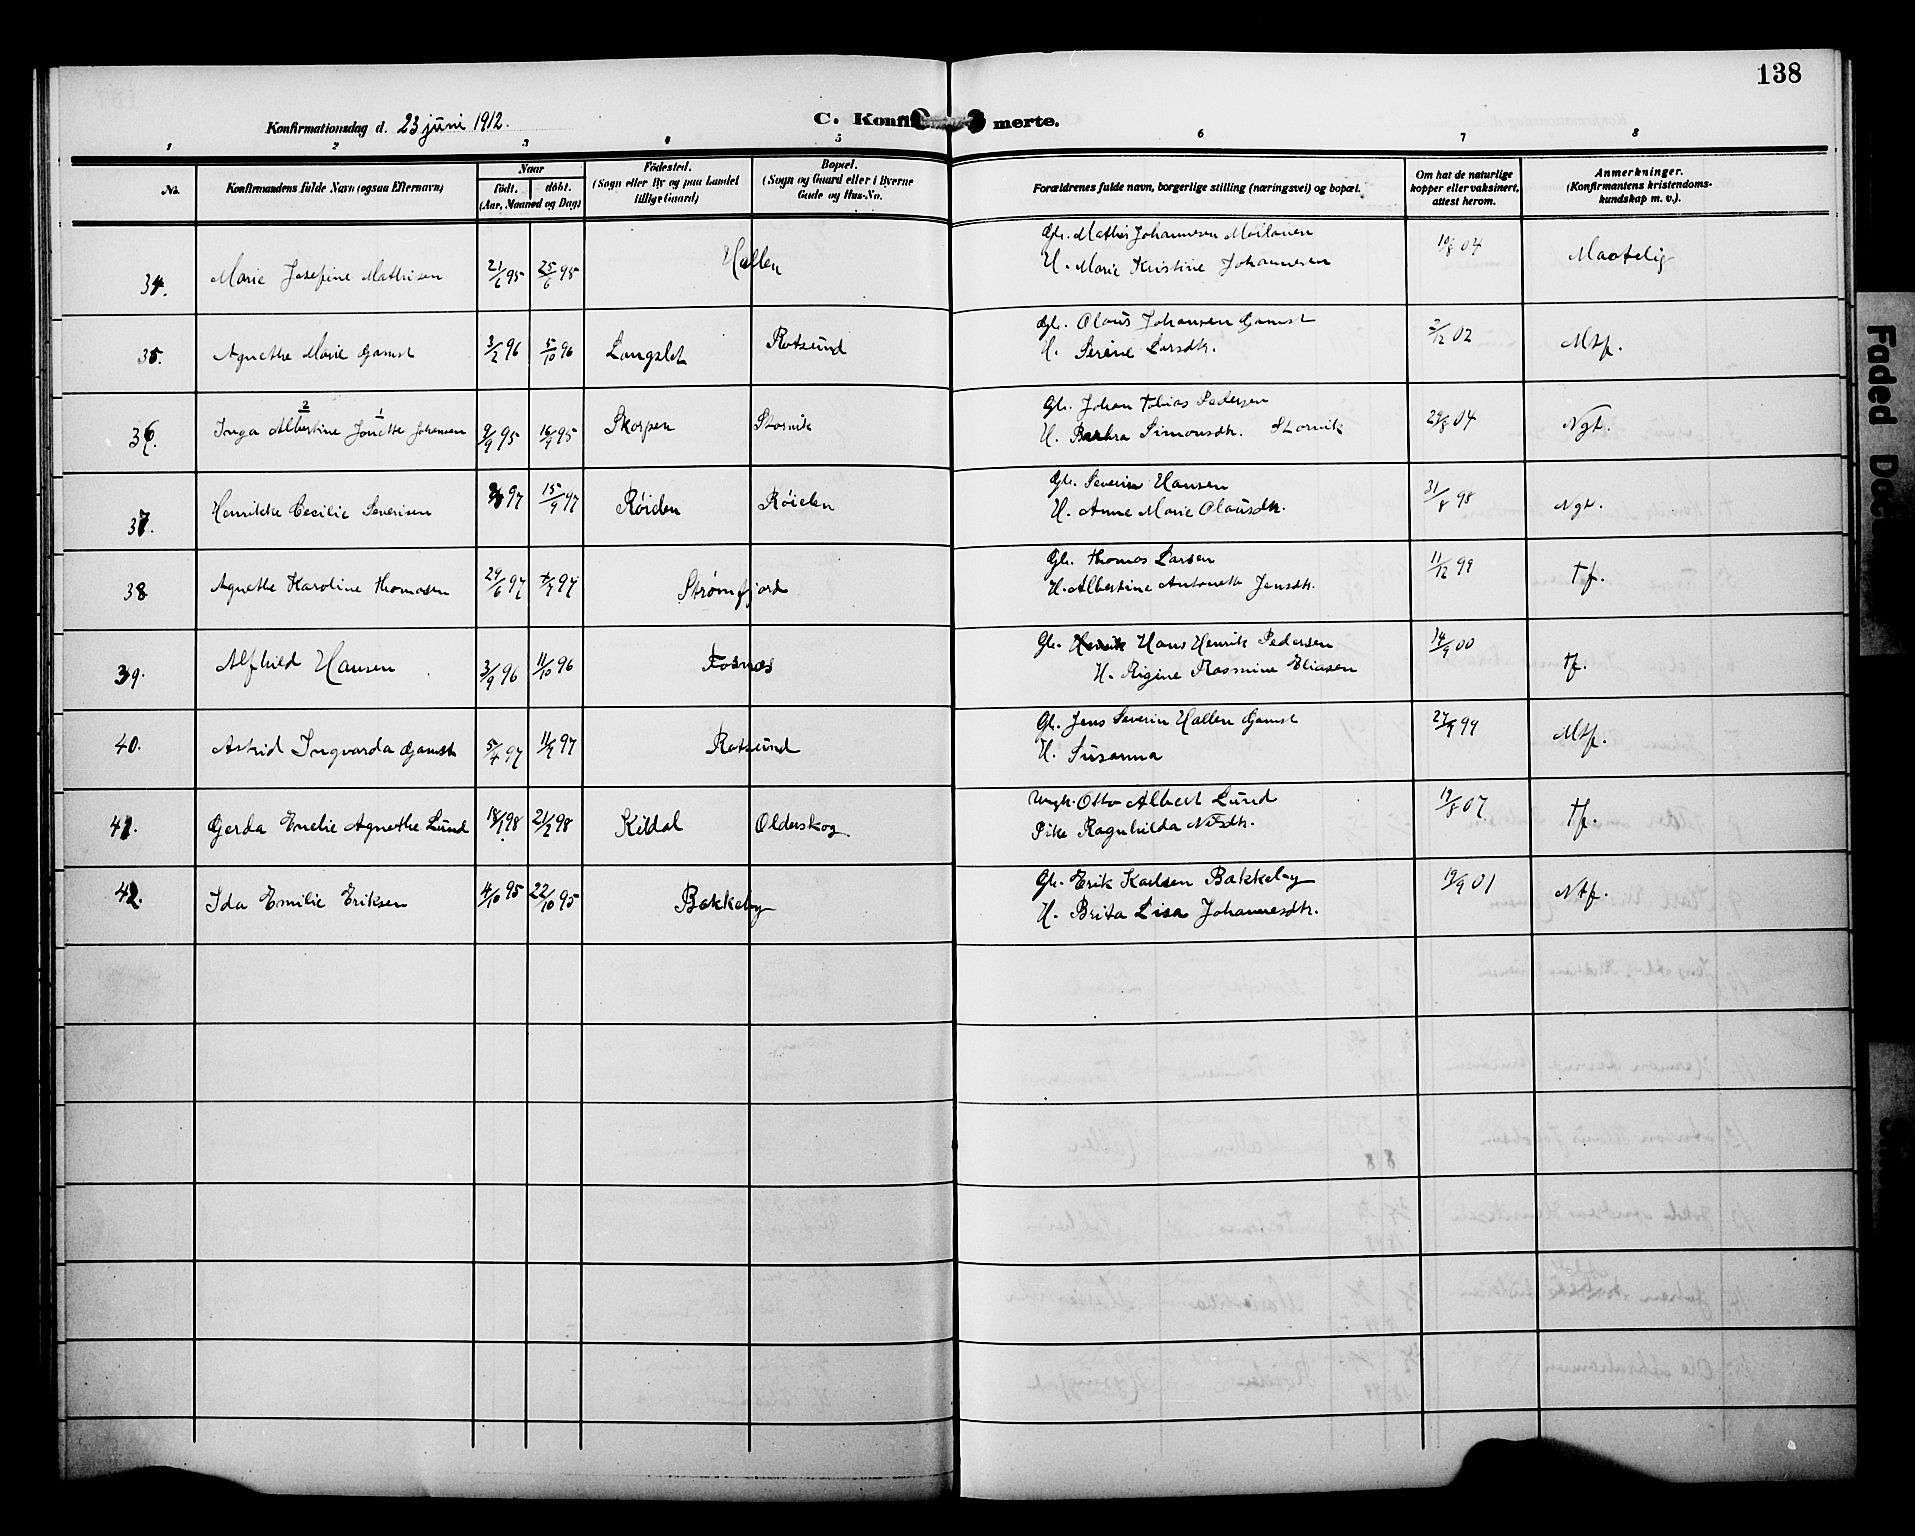 138
Konfirmationsdag d. 23 juni 1912.
C. Konfirmerte.
1 2 3 4 5 6 7 8
No.
Konfirmandens fulde Navn (ogsaa Efternavn)
Naar
født. døbt.
(Aar, Maaned og Dag)
Fødested.
(Sogn eller By og paa Landet
tillige Gaard)
Bopæl.
(Sogn og Gaard eller i Byerne
Gade og Hus-No.
Forældrenes fulde navn, borgerlige stilling (næringsvei) og bopæl.
Om hat de naturlige
kopper eller vaksinert,
attest herom.
Anmerkninger.
(Konfirmantens kristendoms-
kundskap m. v.).
34. Marie Josefine Mathisen 21/6 95 25/6 95 Hallen Gbr. Mathis Johannesen Moilanen 19/8 04 Maatelig
H. Marie Kristine Johannesen
35. Agnethe Marie Gamst 3/2 96 5/10 96 Langslet Rotsund Gbr. Olaus Johansen Gamst 2/12 02 Mtf.
H. Serine Larsdtr.
2 1
36. Inga Albertine Jonette Johansen 9/9 95 16/9 95 Skorpen Storvik Gbr. Johan Tobias Pedersen 29/8 04 Ngt.
H. Barbra Simonsdtr. Storvik
37. Henrikke Cecilie Severisen 97 15/9 97 Röielen Röielen Gbr. Severin Hansen 31/8 98 Ngt.
H. Anne Marie Olausdtr.
38 Agnethe Karoline Thomasen 29/6 97 97 Strømfjord Gbr. Thomas Larsen 11/12 99 Tf.
H. Albertine Antonette Jensdtr.
39. Alfhild Hansen 3/9 96 11/10 96 Fosnes Gbr. Hans Henrik Pedersen 14/9 00 tf.
H. Rigine Rasmine Eliasen
40. Astrid Ingvarda Gamst 5/4 97 97 Rotsund Gbr. Jens Severin Hallen Gamst 27/9 99 Mtf.
H. Susanna
41. Gerda Emelie Agnethe Lund 98 98 Kildal Olderskog Ungk. Otto Albert Lund 19/8 07 Tf.
Pike Ragnhilda Nilsdtr.
42. Ida Emilie Eriksen 4/10 95 22/10 95 Bakkeby Gbr. Erik Karlsen Bakkeby 19/9 01 Ntf.
H. Brita Lisa Johannesdtr.
Faded Doc